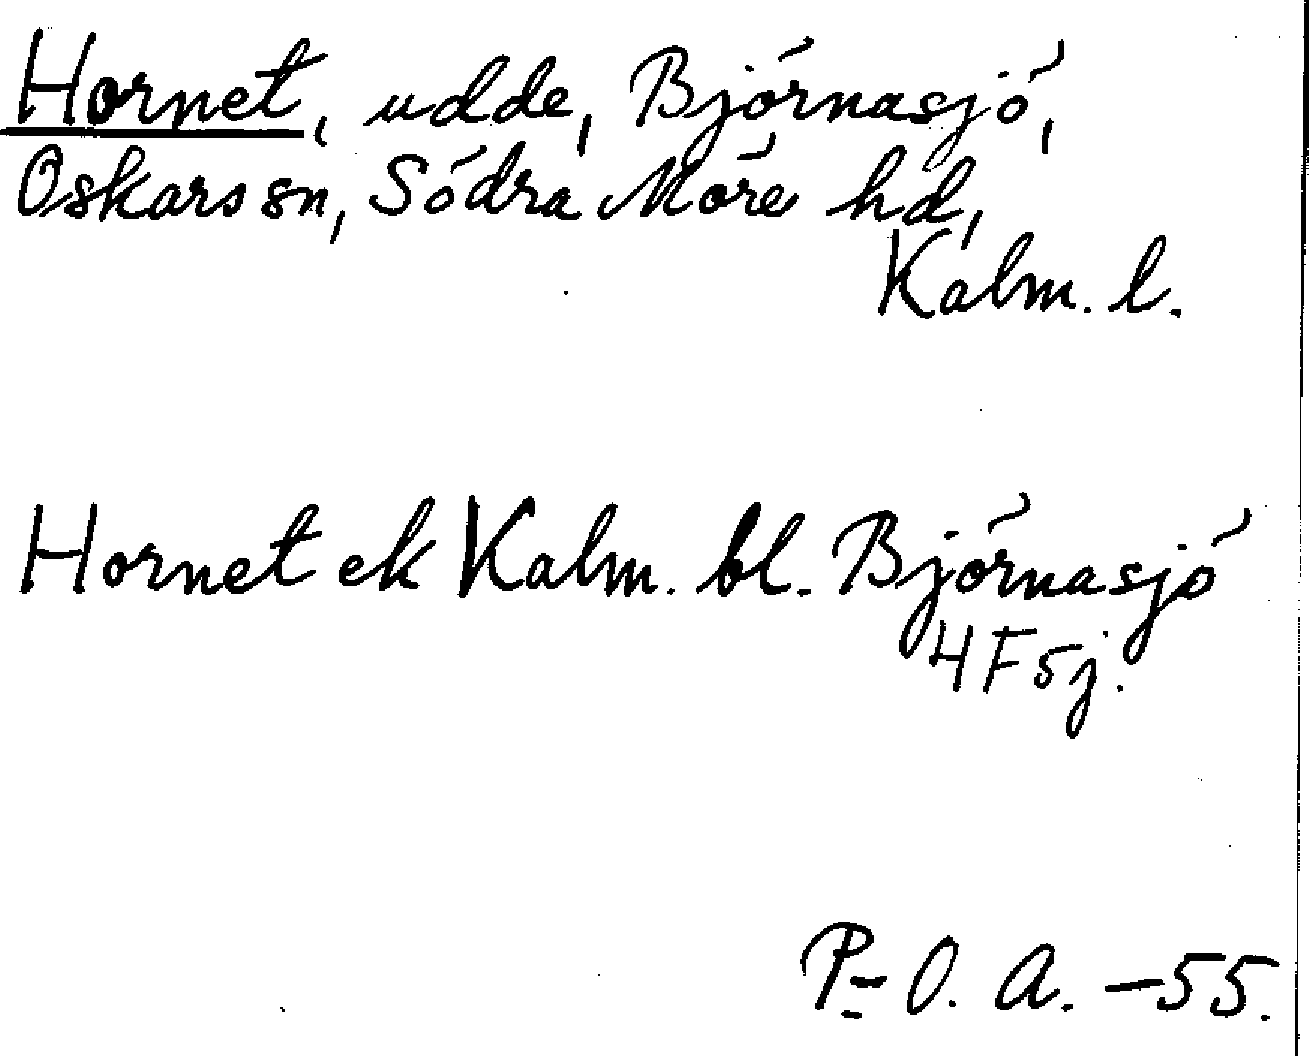 Hornet, udde, Björnasjö,
Oskars sn, Södra Möre hd,
Kalm. l.
Hornet ek Kalm. bl. Björnasjö
4 F 5 j.
P-O. A. -55.